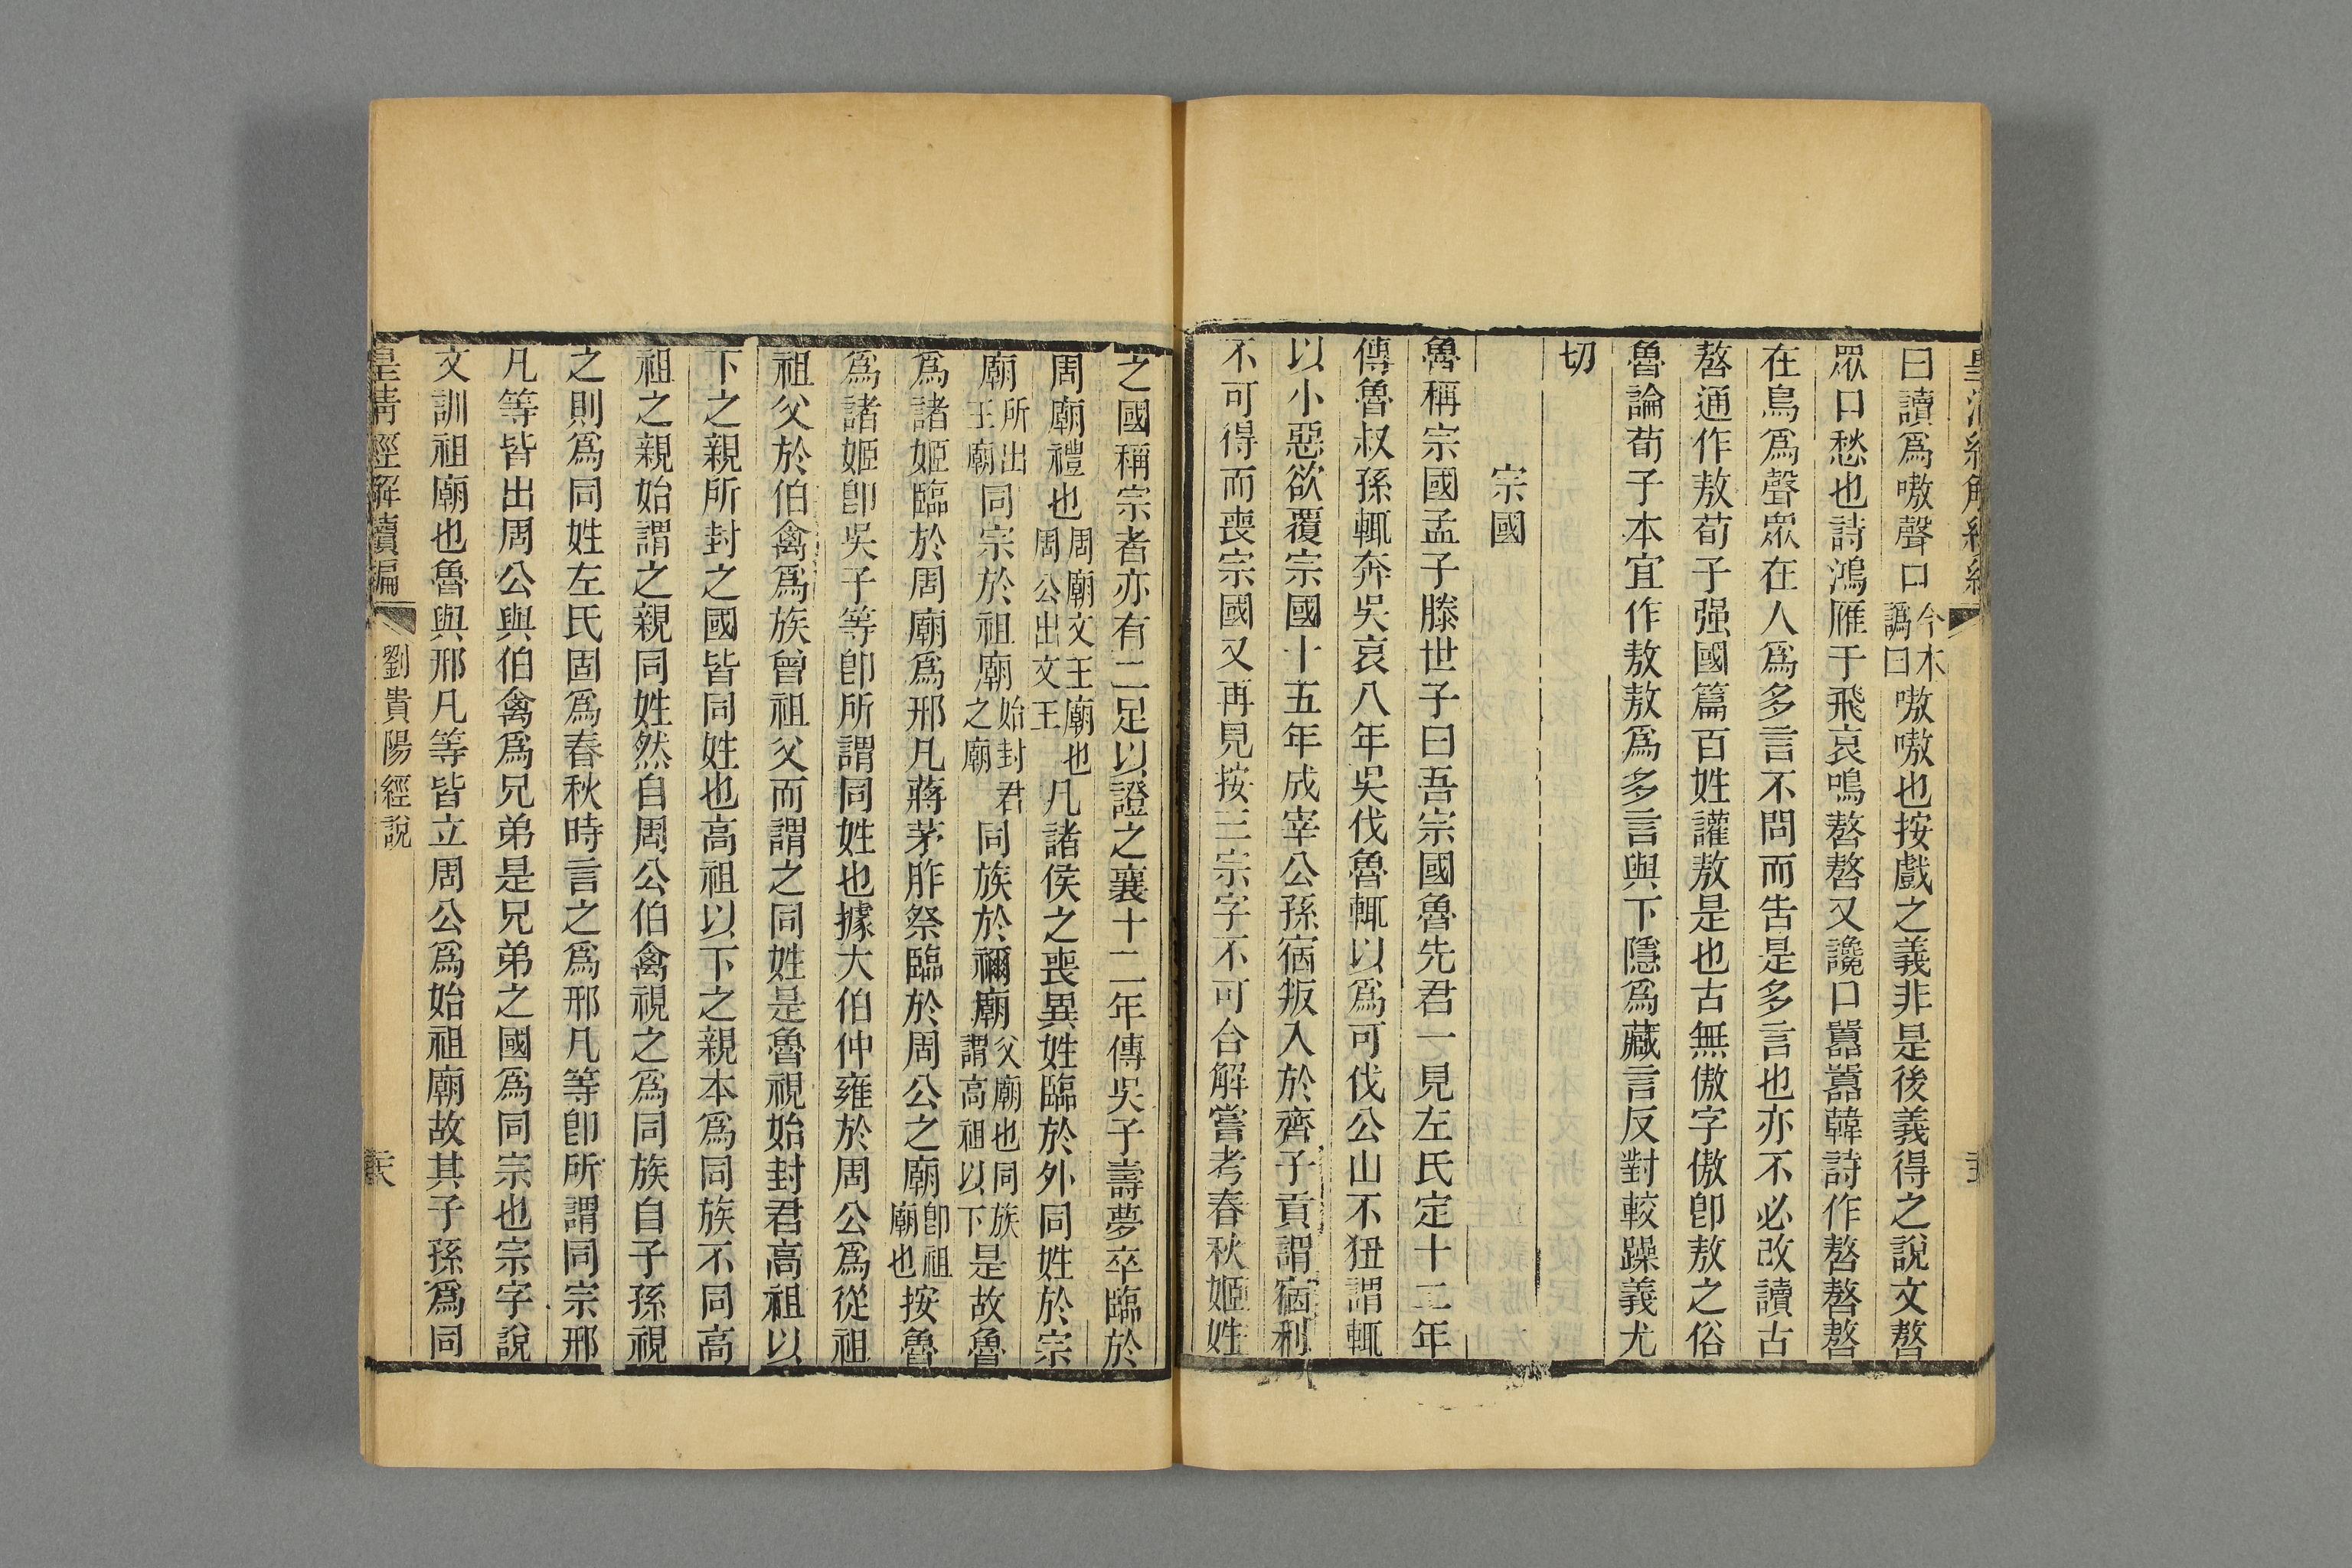 曰讀爲嗷聲口今本譌曰嗷嗷也按戲之義非是後義得之說文嶅
眾口愁也詩鴻雁于飛哀鳴嶅嶅又讒口囂囂韓詩作嶅嶅
在鳥爲聲眾在人爲多言不問而告是多言也亦不必改讀古
嶅通作敖荀子强國篇百姓讙敖是也古無傲字傲卽敖之俗
魯論荀子本宜作敖敖爲多言與下隱爲藏言反對較躁義尤
切
宗國
魯稱宗國孟子滕世子曰吾宗國魯先君一見左氏定十二年
傳魯叔孫輒奔吳哀八年吳伐魯輒以爲可伐公山不狃謂輒
以小惡欲覆宗國十五年成宰公孫宿叛入於齊子貢謂宿利
不可得而喪宗國又再見按三宗字不可合解嘗考春秋姬姓
之國稱宗者亦有二足以證之襄十二年傳吳子壽夢卒臨於
周廟禮也周廟文王廟也周公出文王凡諸侯之喪異姓臨於外同姓於宗
廟所出王廟同宗於祖廟始封君之廟同族於禰廟父廟也同族謂高祖以下是故魯
爲諸姬臨於周廟爲邢凡蔣茅胙祭臨於周公之廟卽祖廟也按魯
爲諸姬卽吳子等卽所謂同姓也據大伯仲雍於周公爲從祖
祖父於伯禽爲族曾祖父而謂之同姓是魯視始封君高祖以
下之親所封之國皆同姓也高祖以下之親本爲同族不同高
祖之親始謂之親同姓然自周公伯禽視之爲同族自子孫視
之則爲同姓左氏固爲春秋時言之爲邢凡等卽所謂同宗邢
凡等皆出周公與伯禽爲兄弟是兄弟之國爲同宗也宗字說
文訓祖廟也魯與邢凡等皆立周公爲始祖廟故其子孫爲同
皇清經解續編
劉貴陽經說